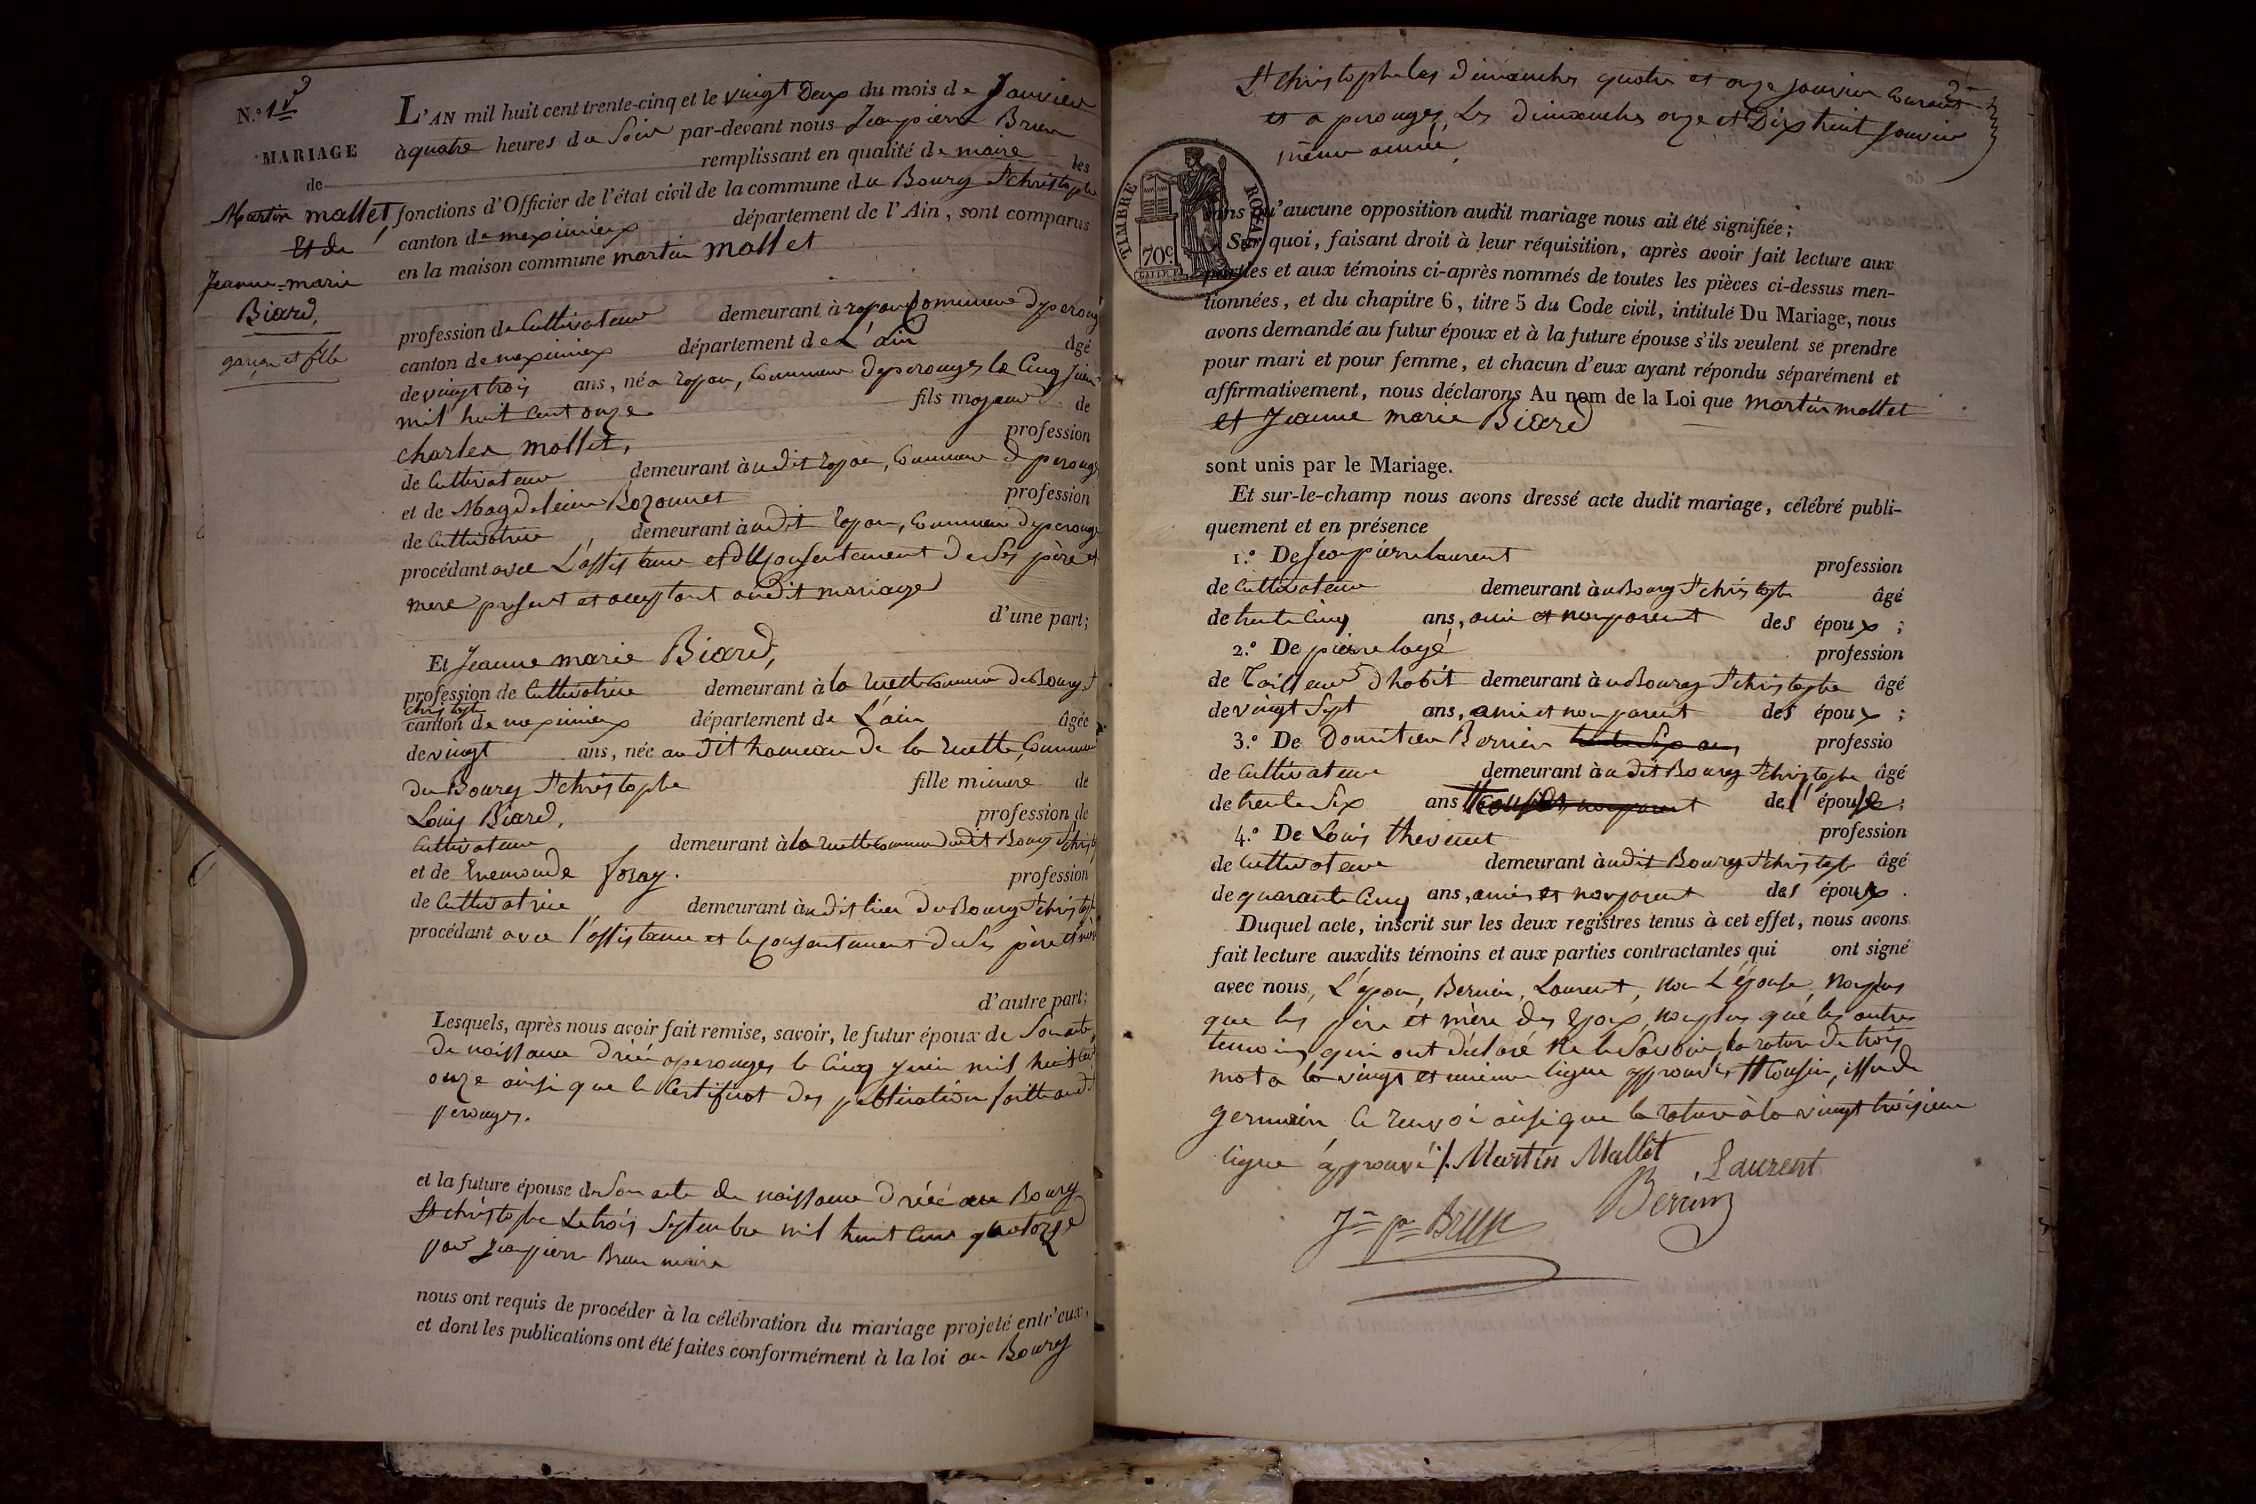 N.º 1er
MARIAGE
de
Martin mallet,
Et de
Jeanne-marie
Biard,
garçon et fille
L'AN mil huit cent trente-cinq et le vingt Deux du mois de Janvier
à quatre heures du Soir par-devant nous Jeanpierre Brun
remplissant en qualité de maire les
fonctions d'Officier de l'état civil de la commune du Bourg St christophe
canton de meximieux département de l'Ain, sont comparus
en la maison commune martin mallet
profession de Cultivateur demeurant à rapan Commune de perouges
canton de meximieux département de L'ain âgé
de vingt trois ans, né a rapan, Commune de perouges le Cinq juin
mil huit cent onze fils majeur de
charles mallet, profession
de Cultivateur demeurant à udit rapan, Commune de perouges
et de Magdeleine Bozonnet profession
de Cultivatrice demeurant à udit rapan, Commune de perouges
procédant avec L'assistance et du Consentement de Ses père et
mere present et acceptant audit mariage
d'une part;
Et Jeanne marie Biard,
profession de Cultivatrice demeurant à la ruette Commune du Bourg St
christophe
canton de meximieux département de L'ain âgée
de vingt ans, née au dit hameau de la ruette, Commune
du Bourg St christophe fille mineure de
Louis Biard, profession de
Cultivateur demeurant à la ruette Commune dudit Bourg St christophe
et de Enemonde foray. profession
de Cultivatrice demeurant à udit lieu du Bourg St christophe
procédant avec l'assistance et le Consentement de Ses père et mère
d'autre part;
Lesquels, après nous avoir fait remise, savoir, le futur époux de Son acte
de naissance dréé a perouges le Cinq juin mil huit cent
onze ainsi que le Certificat des publication faitte audit
perouges.
et la future épouse de Son acte de naissance dréé au Bourg
St christophe Le trois Septembre mil huit Cent quatorze
par jeanpierre Brun maire
nous ont requis de procéder à la célébration du mariage projeté entr'eux,
et dont les publications ont été faites conformément à la loi au Bourg
St christophe les dimanches quatre et onze janvier courant
et a perouges, Les dimanches onze et Dix huit janvier
même année,
TIMBRE ROYAL
70c.
sans qu'aucune opposition audit mariage nous ait été signifiée;
Sur quoi, faisant droit à leur réquisition, après avoir fait lecture aux
parties et aux témoins ci-après nommés de toutes les pièces ci-dessus men-
tionnées, et du chapitre 6, titre 5 du Code civil, intitulé Du Mariage, nous
avons demandé au futur époux et à la future épouse s'ils veulent se prendre
pour mari et pour femme, et chacun d'eux ayant répondu séparément et
affirmativement, nous déclarons Au nom de la Loi que martin mallet
et Jeanne marie Biard
sont unis par le Mariage.
Et sur-le-champ nous avons dressé acte dudit mariage, célébré publi-
quement et en présence
1.º De Jeanpierre laurent profession
de Cultivateur demeurant à u Bourg St christophe âgé
de trente Cinq ans, ami et non parent des époux;
2.º De pierre layé profession
de Tailleur d'habit demeurant à u Bourg St christophe âgé
de vingt Sept ans, ami et non parent des époux;
3.º De Domitien Bernin trente Six ans professio
de Cultivateur demeurant à udit Bourg St christophe âgé
de trente Six ans non parent de l'épouse;
4.º De Louis thevenet profession
de Cultivateur demeurant à udit Bourg St christophe âgé
de quarante Cinq ans, amis et non parent des époux.
Duquel acte, inscrit sur les deux registres tenus à cet effet, nous avons
fait lecture auxdits témoins et aux parties contractantes qui ont signé
avec nous, L'époux, Bernin, Laurent, non L'épouse, non plus
que les père et mère des époux, non plus que les autres
temoins, qui ont déclaré ne le Savoir, la rature de trois
mot a la vingt et unieme ligne approuvés # Cousin, issu de
germain, le renvoi ainsi que la rature à la vingt troisieme
ligne approuvé /. Martin Mallet
Laurent
Bernin
Jn pre Brun